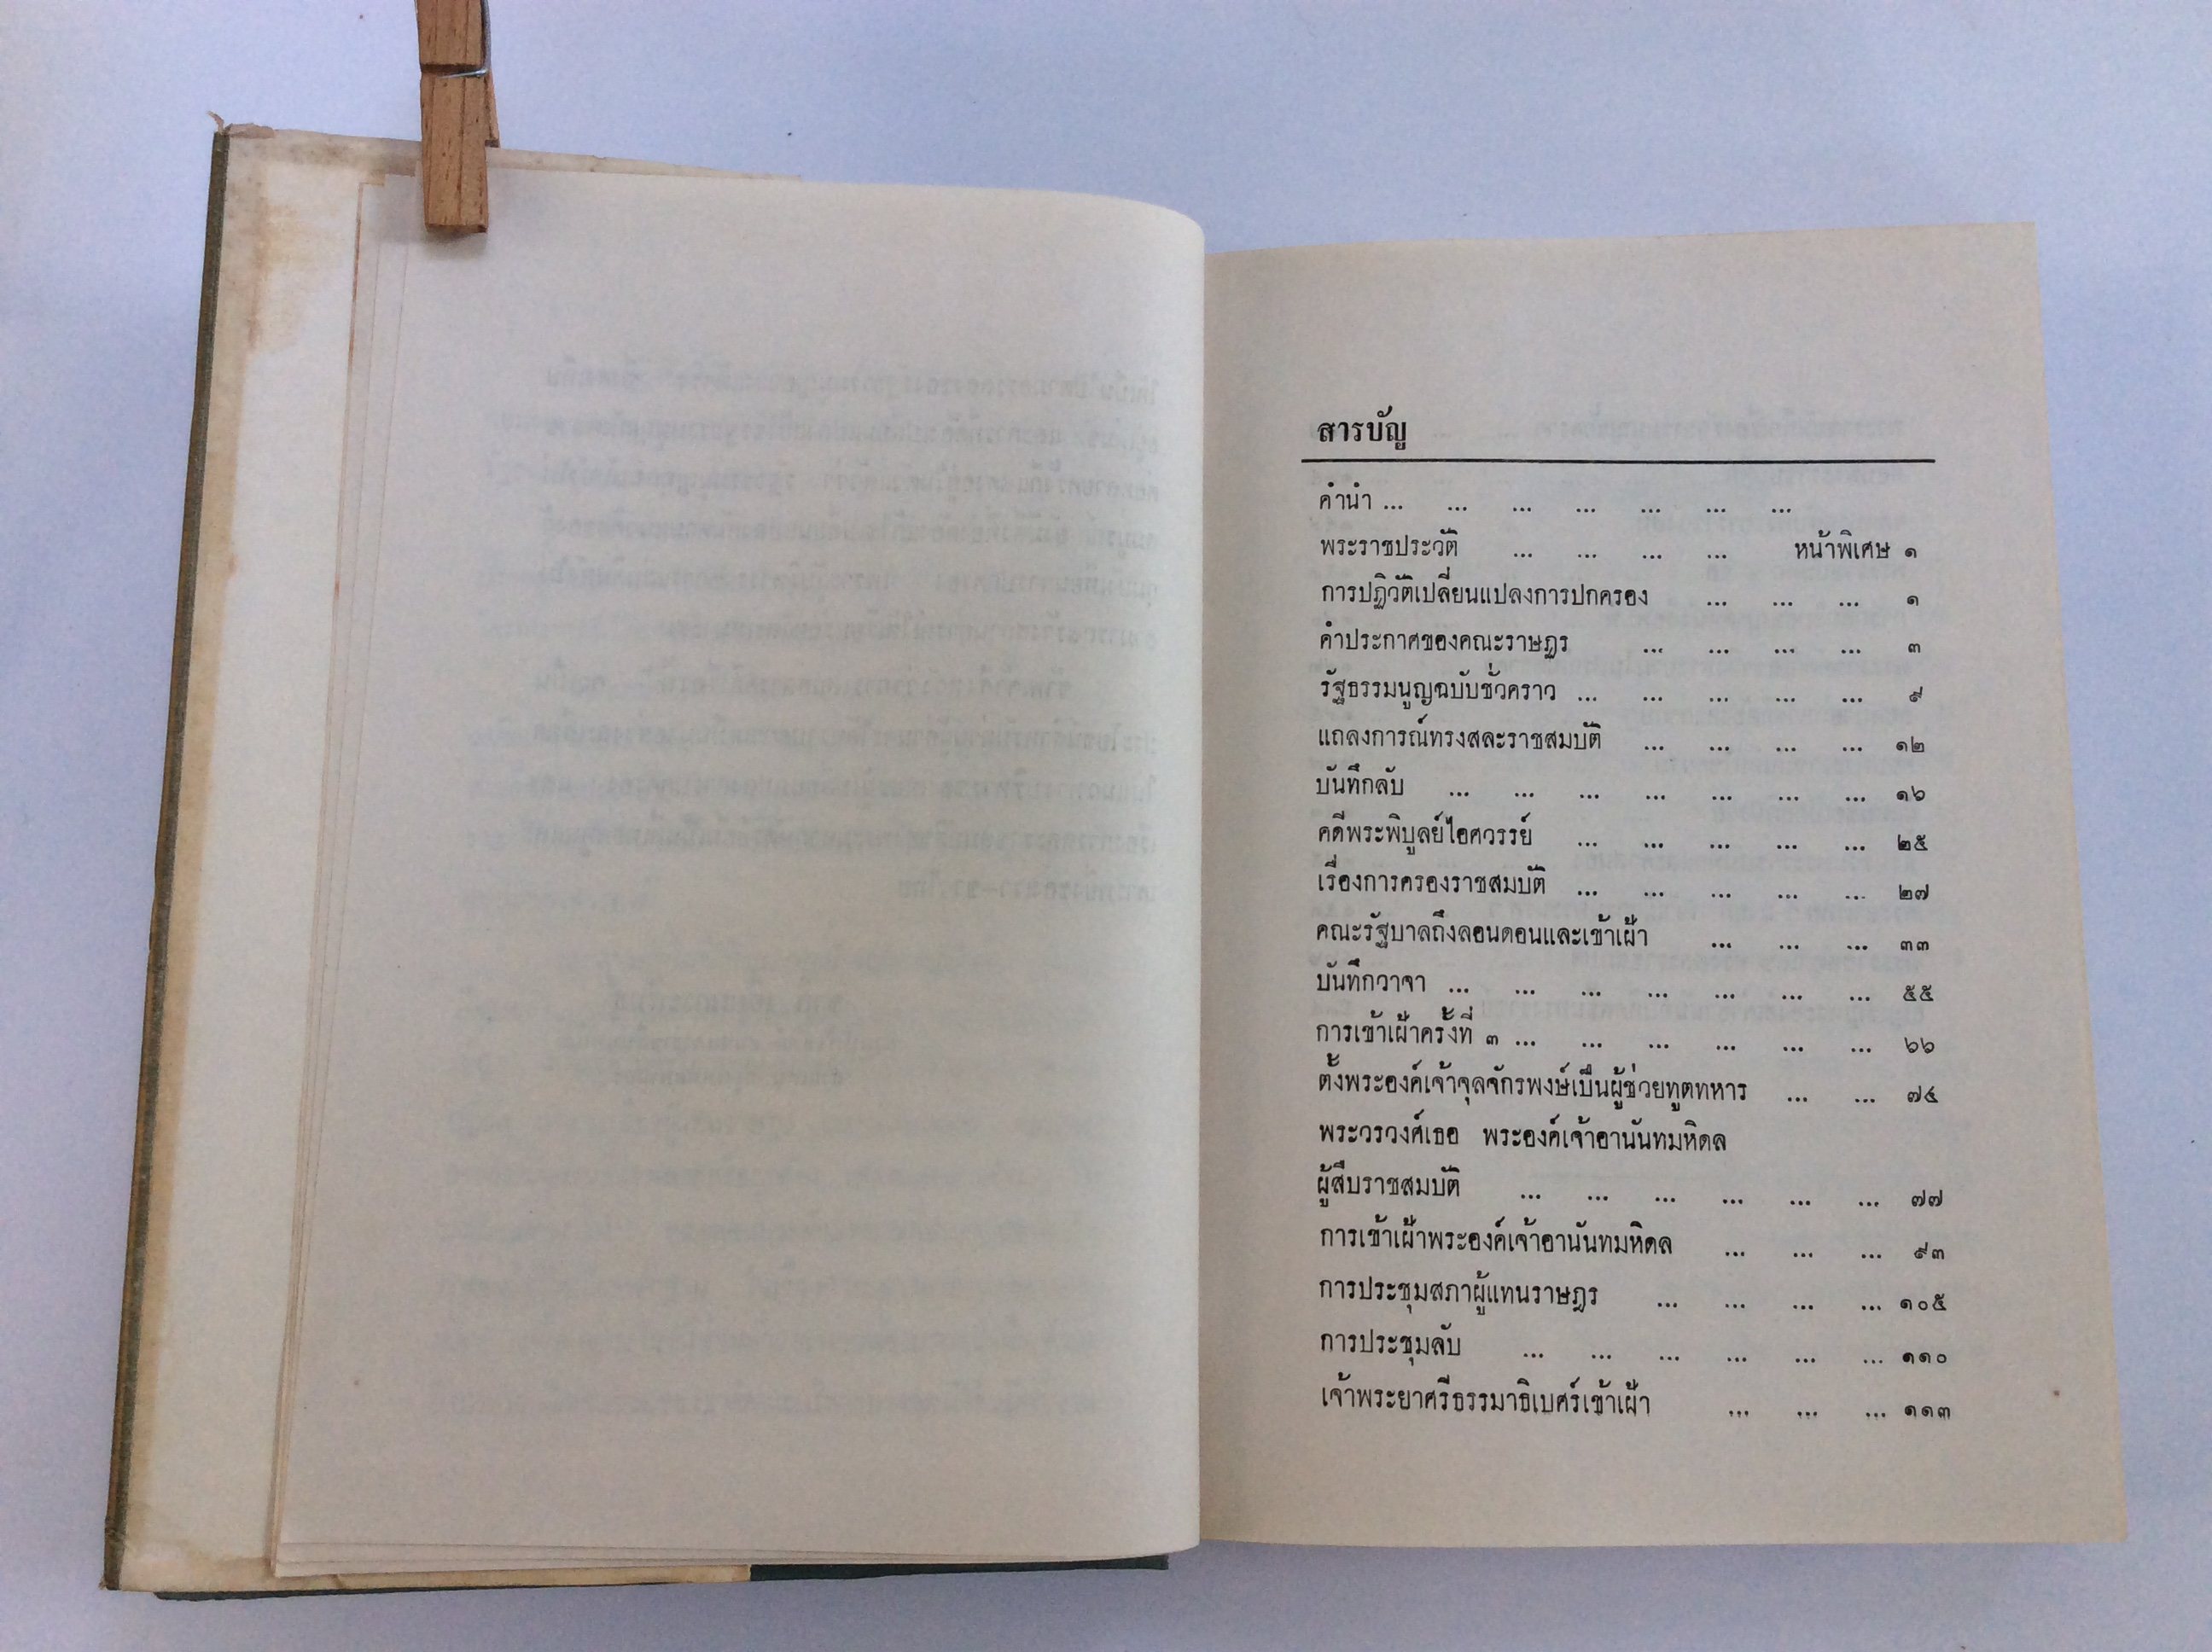 สารบัญ
คำนำ ... ... ... ... ... ... ...
พระราชประวัติ ... ... ... ... หน้าพิเศษ ๑
การปฏิวัติเปลี่ยนแปลงการปกครอง ... ... ... ๑
คำประกาศของคณะราษฎร ... ... ... ... ๓
รัฐธรรมนูญฉบับชั่วคราว ... ... ... ... ... ๙
แถลงการณ์ทรงสละราชสมบัติ ... ... ... ... ๑๒
บันทึกลับ ... ... ... ... ... ... ... ๑๖
คดีพระพิบูลย์ไอศวรรย์ ... ... ... ... ... ๒๕
เรื่องการครองราชสมบัติ ... ... ... ... ... ๒๗
คณะรัฐบาลถึงลอนดอนและเข้าเฝ้า ... ... ... ๓๓
บันทึกวาจา ... ... ... ... ... ... ... ๕๕
การเข้าเฝ้าครั้งที่ ๓ ... ... ... ... ... ... ๖๖
ตั้งพระองค์เจ้าจุลจักรพงษ์เป็นผู้ช่วยทูตทหาร ... ... ๗๔
พระวรวงศ์เธอ พระองค์เจ้าอานันทมหิดล
ผู้สืบราชสมบัติ ... ... ... ... ... ... ๗๗
การเข้าเฝ้าพระองค์เจ้าอานันทมหิดล ... ... ... ๙๓
การประชุมสภาผู้แทนราษฎร ... ... ... ... ๑๐๕
การประชุมลับ ... ... ... ... ... ... ๑๑๐
เจ้าพระยาศรีธรรมาธิเบศร์เข้าเฝ้า ... ... ... ๑๑๓